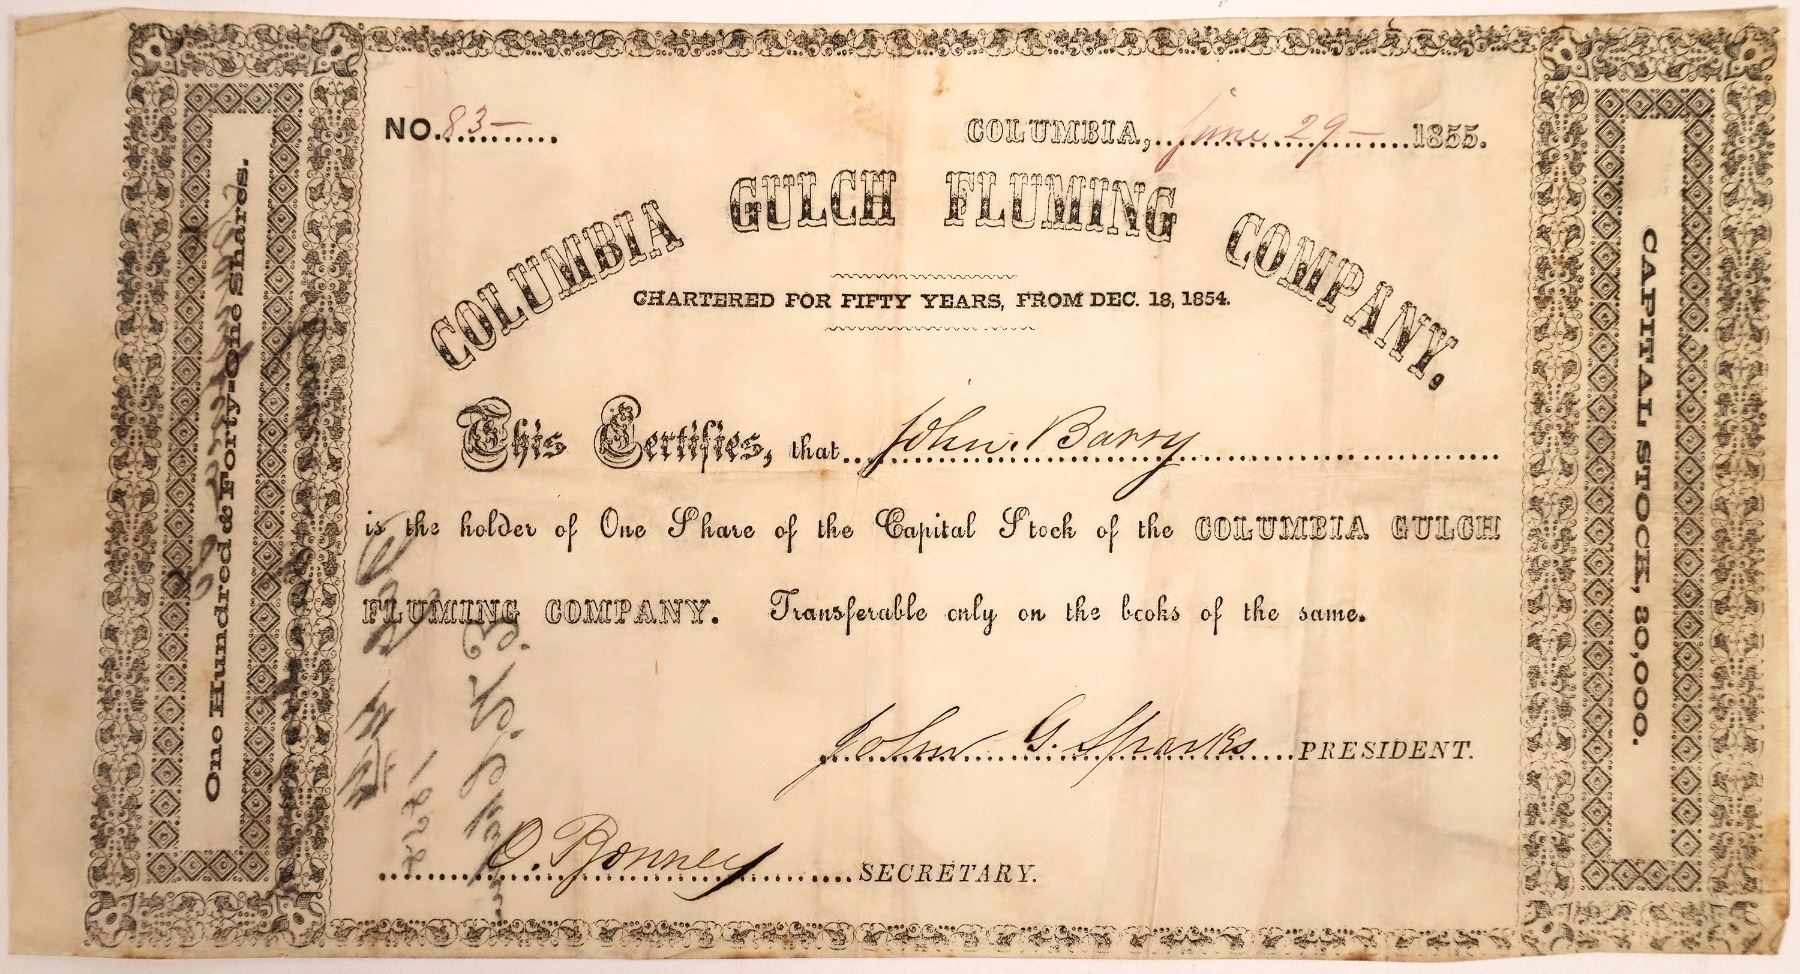 NO. 83-
COLUMBIA, June 29- 1855.
COLUMBIA GULCH FLUMING COMPANY,
CHARTERED FOR FIFTY YEARS, FROM DEC. 18, 1854.
This Certifies, that John Barry
is the holder of One Share of the Capital Stock of the COLUMBIA GULCH
FLUMING COMPANY. Transferable only on the books of the same.
John G. Sparks PRESIDENT.
O. Bonney SECRETARY.
One Hundred & Forty-One Shares.
CAPITAL STOCK, 80,000.